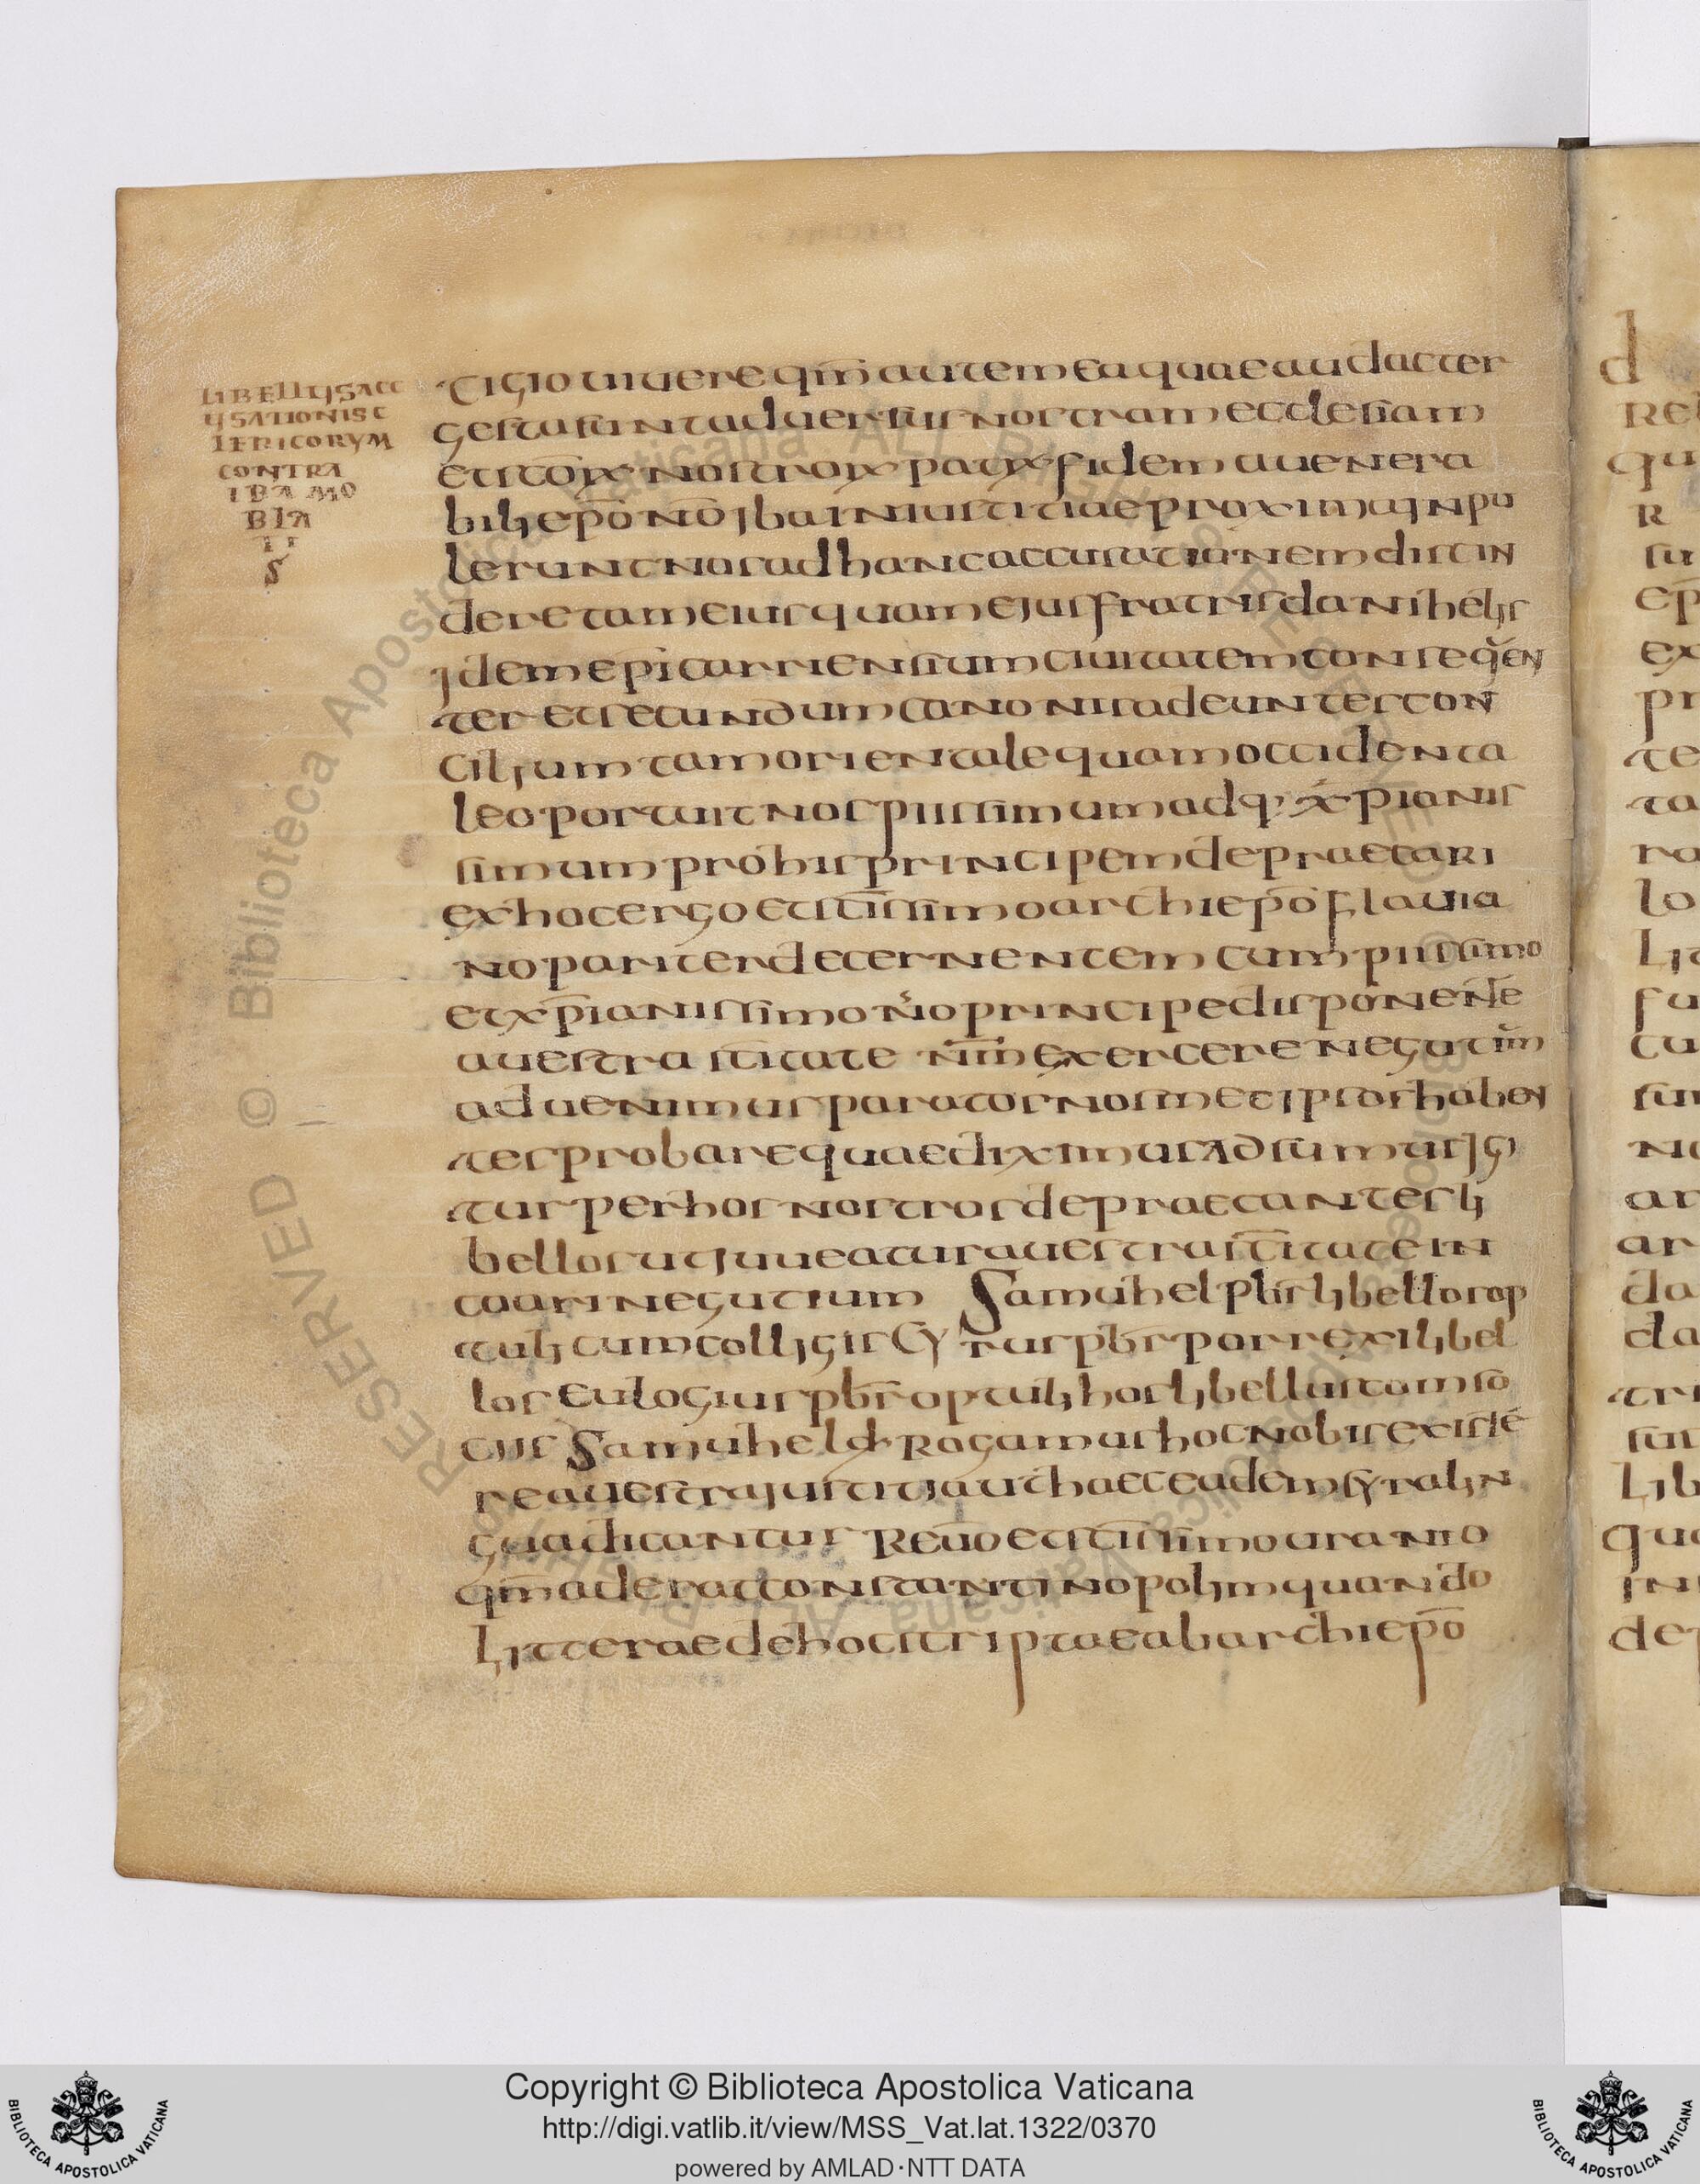 LIBELLUS ACC
USATIONIS C
LERICORUM
CONTRA
IBA MO
BIA
TI
S
tigio uiuere qm̄ autem ea quae audacter
gesta sunt aduersus nostram ecclesiam
et sc̄ōꝝ nostroꝝ patꝝ fidem a uenera
bili ep̄o nō iba iniustitiae proxima inpu
lerunt nos ad hanc accusationem distin
dere tam eius quam eius fratris danihelis
idem ep̄i carriensium ciuitatem conseqūen
ter et secundum canonis adeuntes con
cilium tam orientale quam occidenta
le oportuit nos piissimum adq; xp̄ianis
simum pro his principem depraecari
ex hoc ergo et sc̄issimo archiep̄o flauia
no pariter decernentem cum piissimo
et xp̄ianissimo nr̄o principe disponente
a uestra sc̄itate nīm exercere negutiūm
aduenimus paratos nosmet ipsos haben
tes probare quae diximus adsumus igi
tur per hos nostros depraecantes li
bellos ut iuueatur a uestra sc̄itate in
toari negutium Samuhel p̄br̄ libellos op
tuli cum colligis Cyrus p̄br̄ porrexi libel
los Eulogius p̄br̄ optuli hos libellus tam so
cus Samuhel & Rogamus hoc nobis existē
re a uestra iustitia ut haec eadem syra lin
gua dicantur Reuō et sc̄issimo uranio
qm̄ aderat constantinopolim quando
Litterae de hoc scriptae ab archiep̄o
d
Re
qu
R
su
ep
ex
pr
te
ta
ra
lo
Lit
fu
cu
sun
no
ar
ar
da
da
tri
sui
Lib
quo
in
de
© Biblioteca Apostolica Vaticana ALL RIGHTS RESERVED
Copyright © Biblioteca Apostolica Vaticana
http://digi.vatlib.it/view/MSS_Vat.lat.1322/0370
powered by AMLAD·NTT DATA
BIBLIOTECA APOSTOLICA VATICANA
BIBLIOTECA APOSTOLICA VATICANA